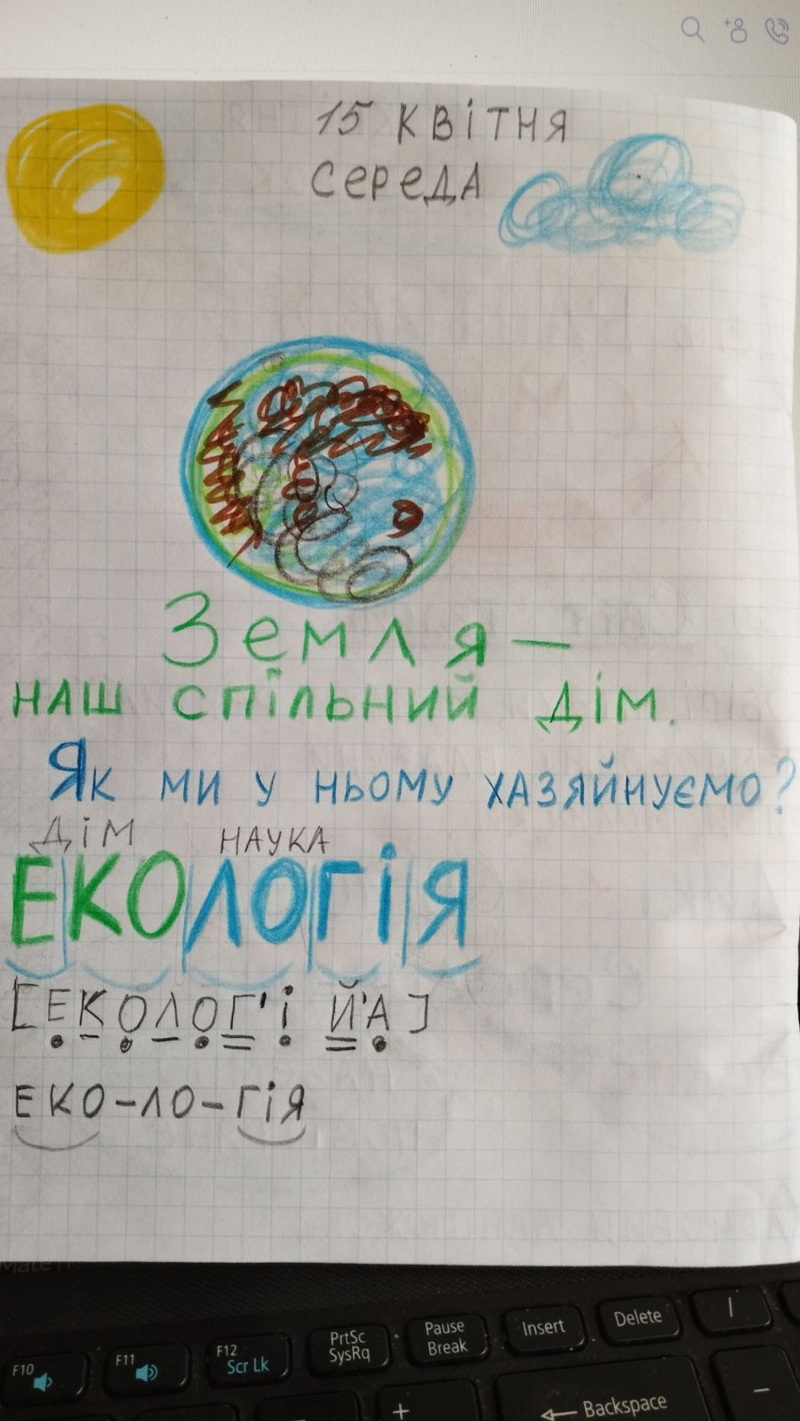 15 КВІТНЯ
СЕРЕДА
Земля –
наш спільний дім.
Як ми у ньому хазяйнуємо?
ДІМ НАУКА
ЕКОЛОГІЯ
[ЕКОЛОГ'І Й'А]
ЕКО-ЛО-ГІЯ
PrtSc
SysRq
Pause
Break
Insert
Delete
F10
F11
F12
Scr Lk
+
Backspace